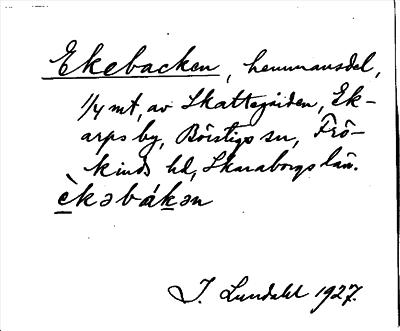 Ekebacken, hemmansdel,
1/4 mt, av Skattegården, Ek-
arps by, Börstigs sn, Frö-
kinds hd, Skaraborgs län.
èkəbákən
J. Lundahl 1927.